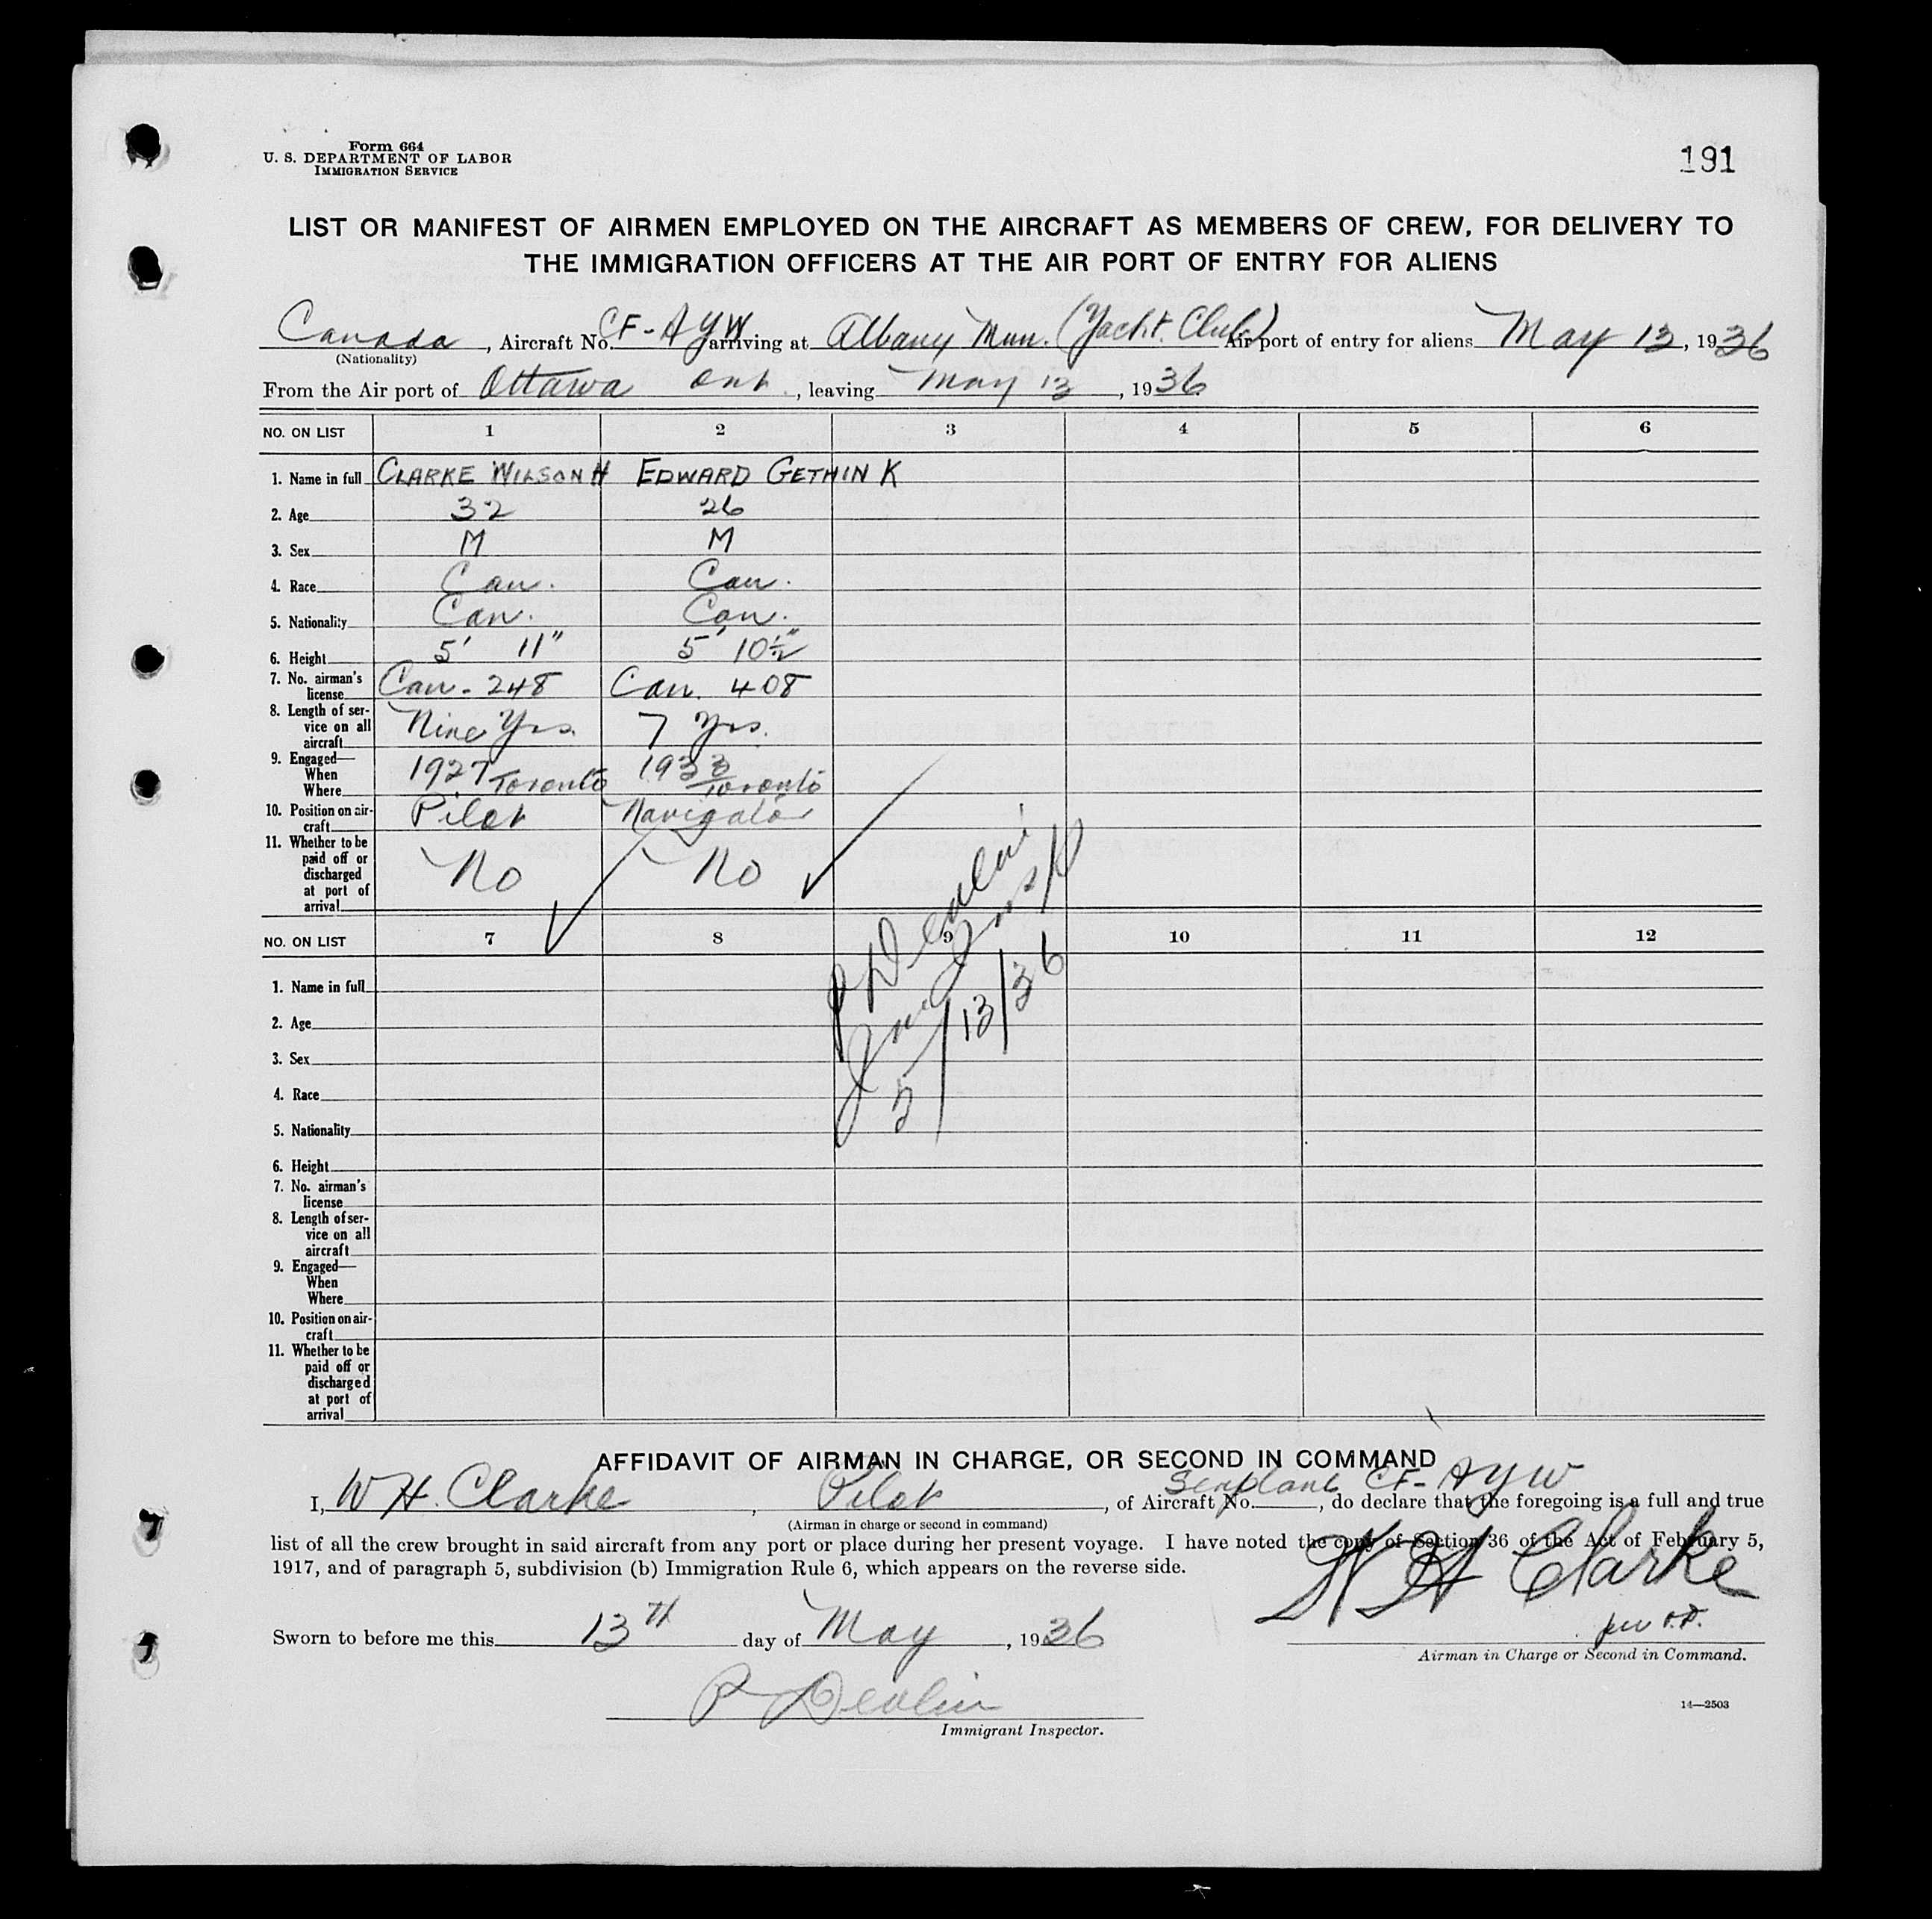 Form 664
U. S. DEPARTMENT OF LABOR
IMMIGRATION SERVICE
191
LIST OR MANIFEST OF AIRMEN EMPLOYED ON THE AIRCRAFT AS MEMBERS OF CREW, FOR DELIVERY TO
THE IMMIGRATION OFFICERS AT THE AIR PORT OF ENTRY FOR ALIENS
Canada, Aircraft No. CF-AYW arriving at Albany Mun. (Yacht Club) Air port of entry for aliens May 13, 1936
(Nationality)
From the Air port of Ottawa Ont., leaving May 13, 1936
NO. ON LIST 1 2 3 4 5 6
1. Name in full CLARKE WILSON H EDWARD GETHIN K
2. Age 32 26
3. Sex M M
4. Race Can. Can.
5. Nationality Can. Can.
6. Height 5' 11" 5' 10½"
7. No. airman's
license Can. - 248 Can. 408
8. Length of ser-
vice on all
aircraft Nine Yrs. 7 Yrs.
9. Engaged—
When 1927 1933
Where Toronto Toronto
10. Position on air-
craft Pilot Navigator
11. Whether to be
paid off or
discharged
at port of
arrival No No
P Devlin
Imm Insp
5/13/36
NO. ON LIST 7 8 9 10 11 12
1. Name in full
2. Age
3. Sex
4. Race
5. Nationality
6. Height
7. No. airman's
license
8. Length of ser-
vice on all
aircraft
9. Engaged—
When
Where
10. Position on air-
craft
11. Whether to be
paid off or
discharged
at port of
arrival
AFFIDAVIT OF AIRMAN IN CHARGE, OR SECOND IN COMMAND
I, W H. Clarke, Pilot, of Aircraft No. Seaplane CF-AYW, do declare that the foregoing is a full and true
(Airman in charge or second in command)
list of all the crew brought in said aircraft from any port or place during her present voyage. I have noted the copy of Section 36 of the Act of February 5,
1917, and of paragraph 5, subdivision (b) Immigration Rule 6, which appears on the reverse side.
W H Clarke
per P.D.
Sworn to before me this 13TH day of May, 1936
Airman in Charge or Second in Command.
P Devlin
Immigrant Inspector.
14—2503